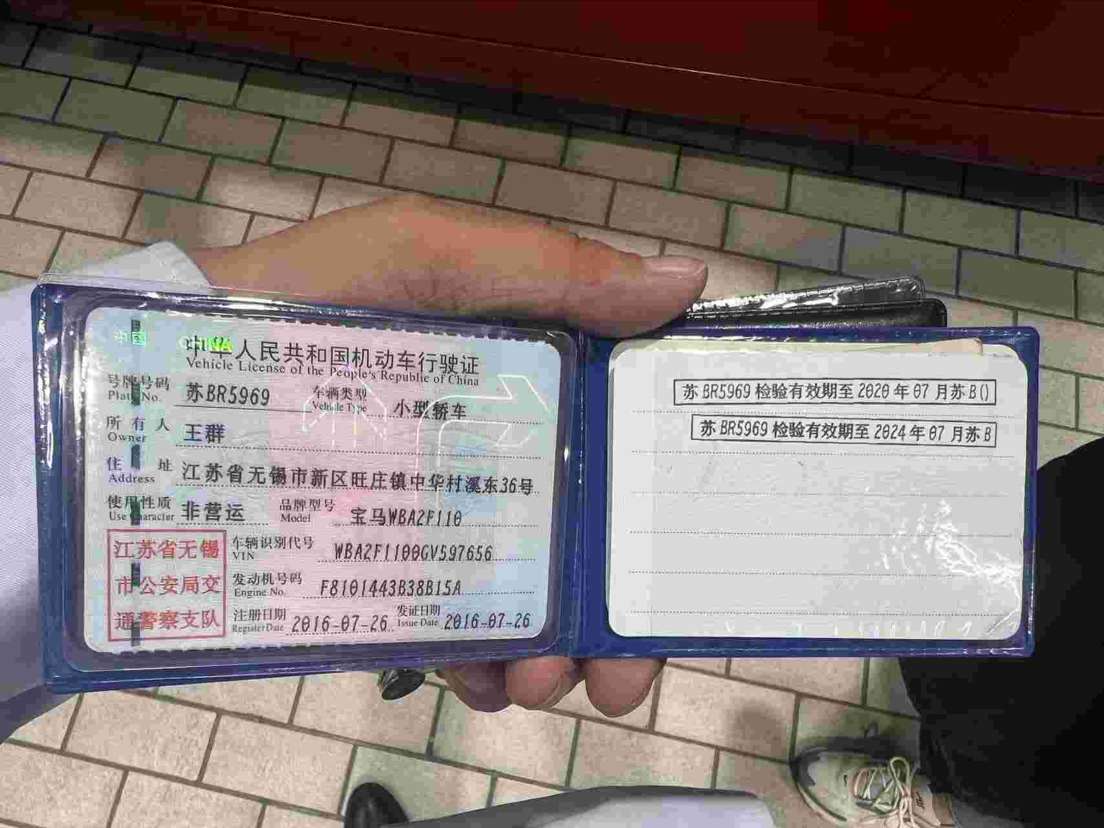 中国 CHINA
中华人民共和国机动车行驶证
Vehicle License of the People's Republic of China
号牌号码 苏BR5969 车辆类型 小型轿车
Plate No. Vehicle Type
所有人 王群
Owner
住址 江苏省无锡市新区旺庄镇中华村溪东36号
Address
使用性质 非营运 品牌型号 宝马WBA2F110
Use Character Model
江苏省无锡
市公安局交
通警察支队
车辆识别代号 WBA2F1100GV597656
VIN
发动机号码 F8101443B38B15A
Engine No.
注册日期 2016-07-26 发证日期 2016-07-26
Register Date Issue Date
苏BR5969检验有效期至2020年07月苏B()
苏BR5969检验有效期至2024年07月苏B